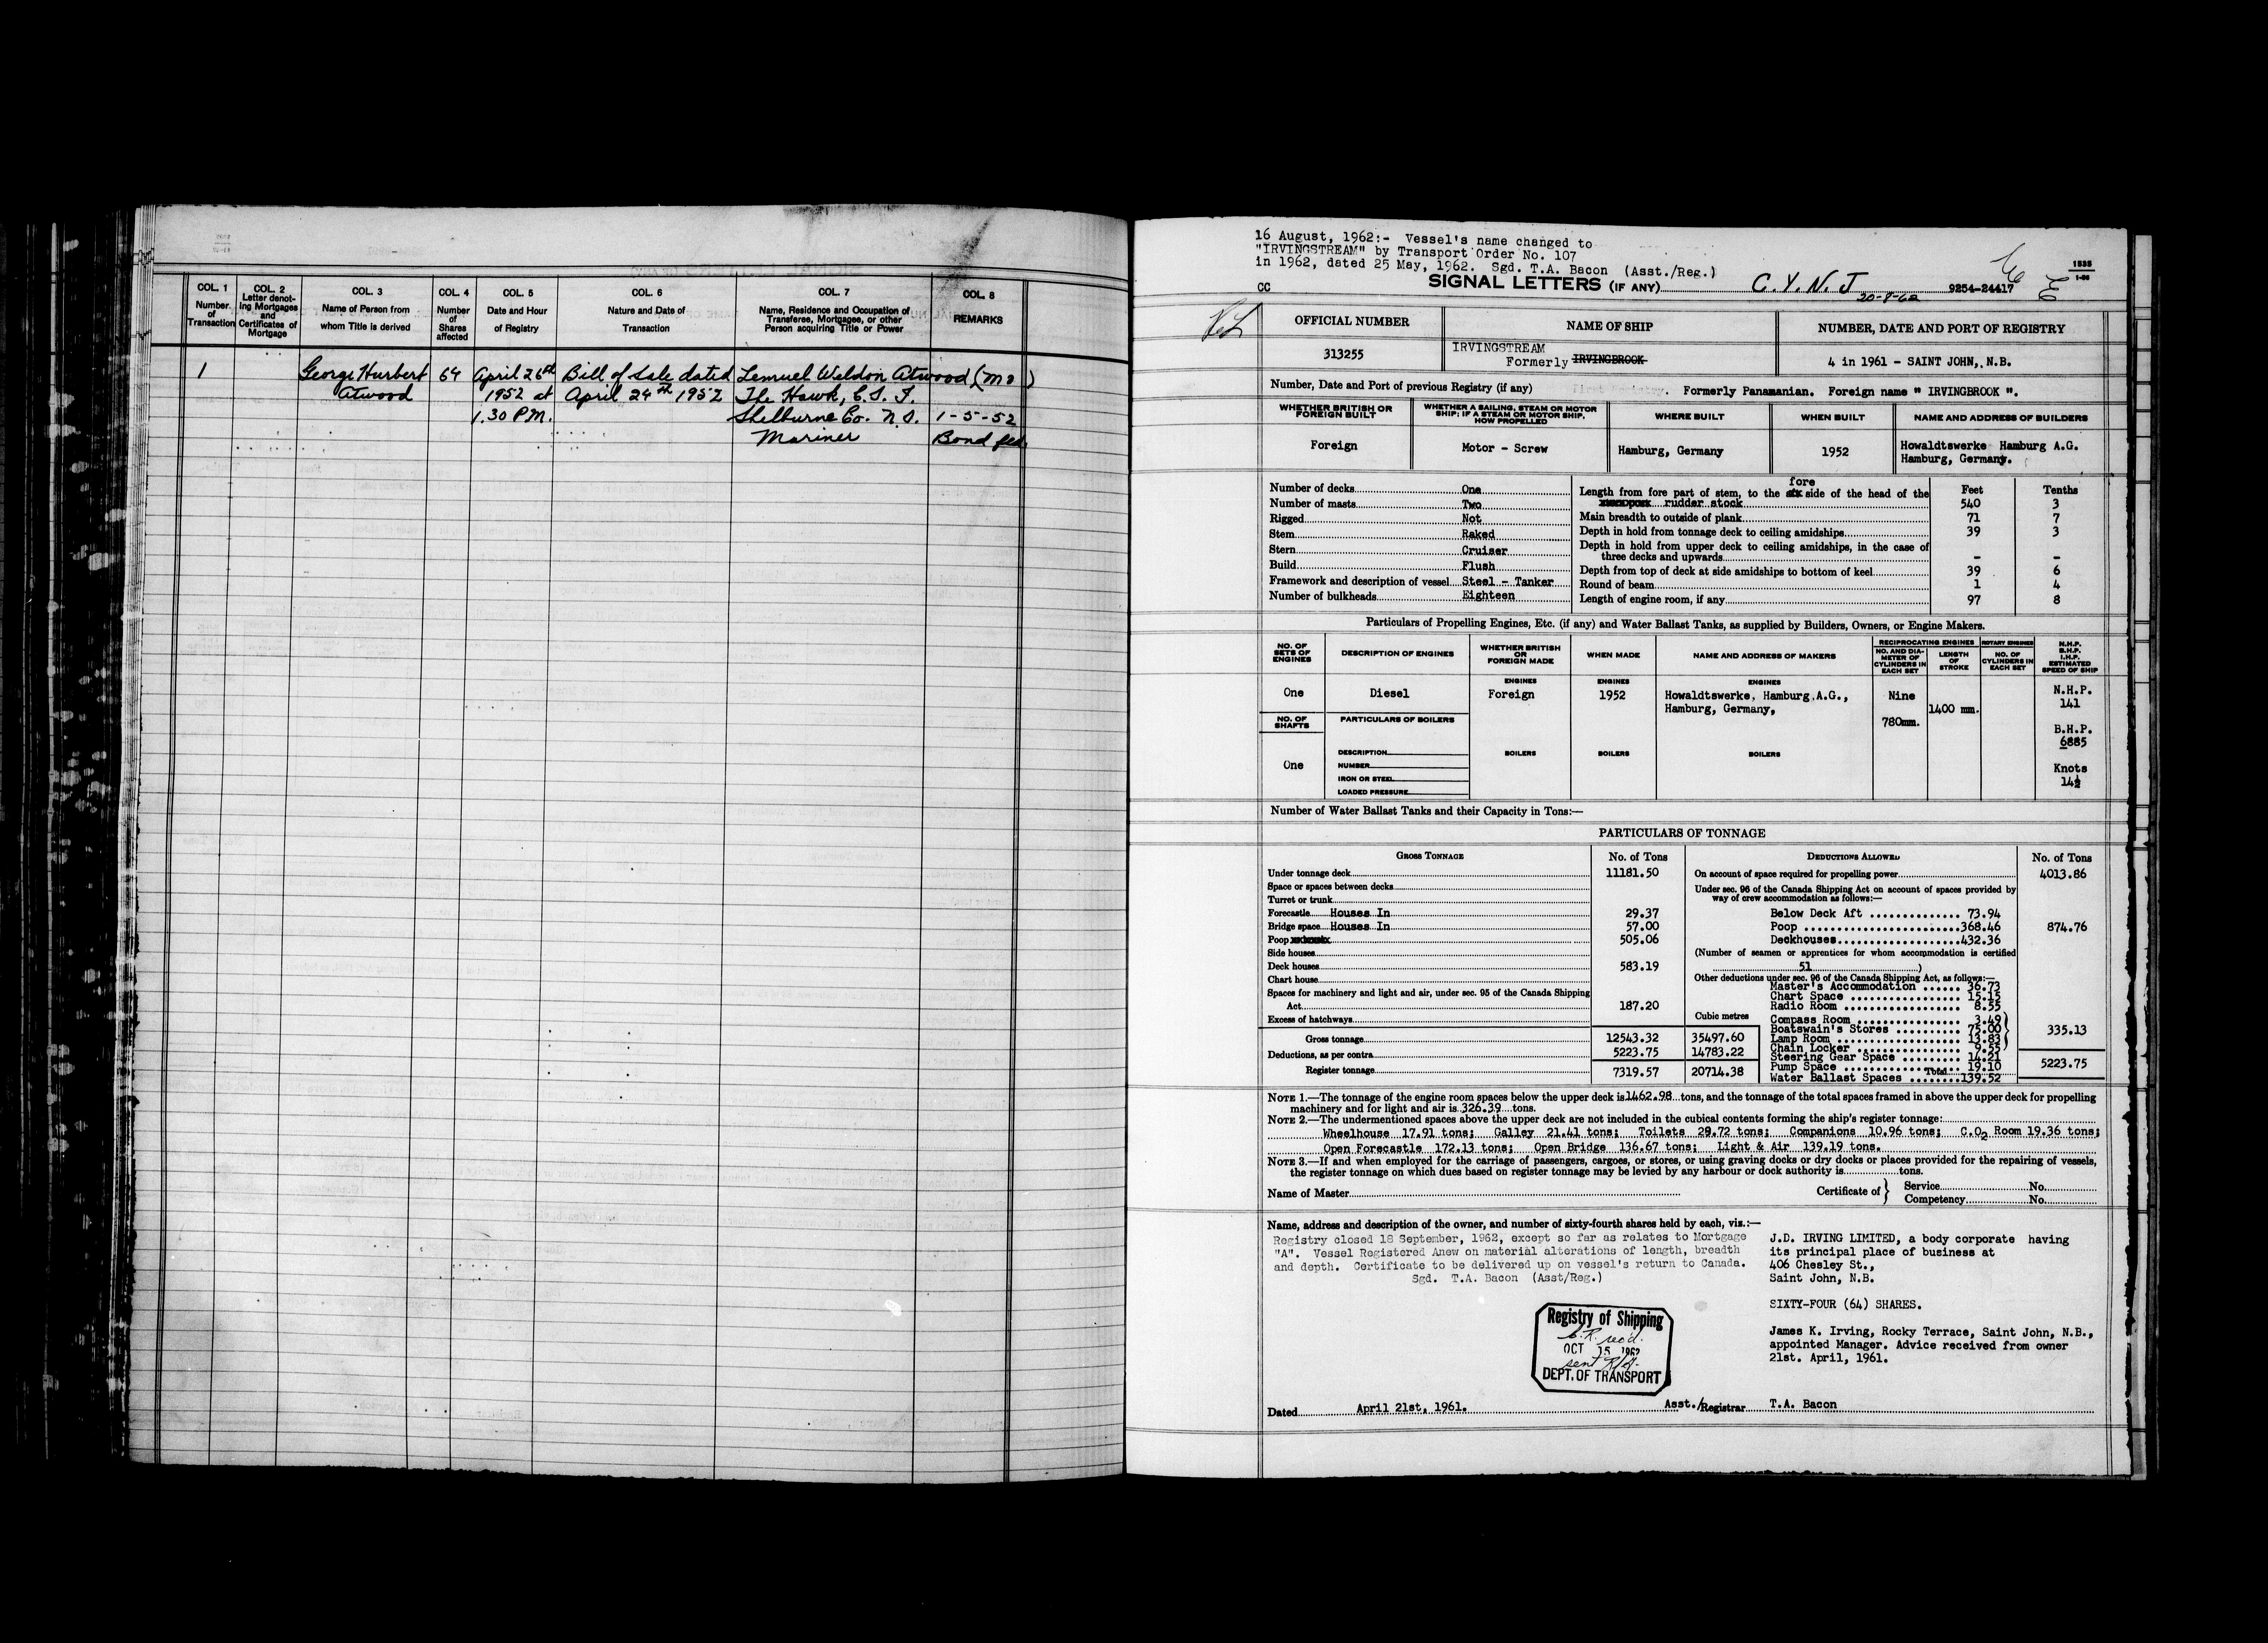 COL. 1
Number
of
Transaction
COL. 2
Letter denot-
ing Mortgages
and
Certificates of
Mortgage
COL. 3
Name of Person from
whom Title is derived
COL. 4
Number
of
Shares
affected
COL. 5
Date and Hour
of Registry
COL. 6
Nature and Date of
Transaction
COL. 7
Name, Residence and Occupation of
Transferee, Mortgagee, or other
Person acquiring Title or Power
COL. 8
REMARKS
1 George Hurbert 64 April 26th Bill of Sale dated Lemuel Weldon Atwood (Mo)
Atwood 1952 at April 24th 1952 The Hawk, C.S.I.
1.30 P.M. Shelburne Co. N.S. 1-5-52
Mariner Bond
16 August, 1962:- Vessel's name changed to
"IRVINGSTREAM" by Transport Order No. 107
in 1962, dated 25 May, 1962. Sgd. T.A. Bacon (Asst./Reg.)
CC SIGNAL LETTERS (IF ANY) C.Y.N.J 20-8-62 9254-24417
1535
1-55
OFFICIAL NUMBER NAME OF SHIP NUMBER, DATE AND PORT OF REGISTRY
313255 IRVINGSTREAM
Formerly IRVINGBROOK 4 in 1961 - SAINT JOHN, N.B.
Number, Date and Port of previous Registry (if any) . Formerly Panamanian. Foreign name " IRVINGBROOK ".
WHETHER BRITISH OR
FOREIGN BUILT
WHETHER A SAILING, STEAM OR MOTOR
SHIP; IF A STEAM OR MOTOR SHIP,
HOW PROPELLED
WHERE BUILT WHEN BUILT NAME AND ADDRESS OF BUILDERS
Foreign Motor - Screw Hamburg, Germany 1952 Howaldtswerke Hamburg A.G.
Hamburg, Germany.
Number of decks One
Number of masts Two
Rigged Not
Stem Raked
Stern Cruiser
Build Flush
Framework and description of vessel Steel - Tanker
Number of bulkheads Eighteen
Feet Tenths
fore
Length from fore part of stem, to the side of the head of the
rudder stock 540 3
Main breadth to outside of plank 71 7
Depth in hold from tonnage deck to ceiling amidships 39 3
Depth in hold from upper deck to ceiling amidships, in the case of
three decks and upwards - -
Depth from top of deck at side amidships to bottom of keel 39 6
Round of beam 1 4
Length of engine room, if any 97 8
Particulars of Propelling Engines, Etc. (if any) and Water Ballast Tanks, as supplied by Builders, Owners, or Engine Makers.
NO. OF
SETS OF
ENGINES
DESCRIPTION OF ENGINES
WHETHER BRITISH
OR
FOREIGN MADE
WHEN MADE
NAME AND ADDRESS OF MAKERS
RECIPROCATING ENGINES
NO. AND DIA-
METER OF
CYLINDERS IN
EACH SET
LENGTH
OF
STROKE
ROTARY ENGINES
NO. OF
CYLINDERS IN
EACH SET
N.H.P.
B.H.P.
I.H.P.
ESTIMATED
SPEED OF SHIP
ENGINES ENGINES ENGINES
One Diesel Foreign 1952 Howaldtswerke, Hamburg A.G., Nine N.H.P.
Hamburg, Germany, 1400 mm. 141
NO. OF
SHAFTS
PARTICULARS OF BOILERS 780mm.
B.H.P.
6885
DESCRIPTION BOILERS BOILERS BOILERS
One NUMBER Knots
IRON OR STEEL 14½
LOADED PRESSURE
Number of Water Ballast Tanks and their Capacity in Tons:—
PARTICULARS OF TONNAGE
GROSS TONNAGE No. of Tons
Under tonnage deck 11181.50
Space or spaces between decks
Turret or trunk
Forecastle Houses In 29.37
Bridge space Houses In 57.00
Poop 505.06
Side houses
Deck houses 583.19
Chart house
Spaces for machinery and light and air, under sec. 95 of the Canada Shipping
Act 187.20
Excess of hatchways Cubic metres
Gross tonnage 12543.32 35497.60
Deductions, as per contra 5223.75 14783.22
Register tonnage 7319.57 20714.38
DEDUCTIONS ALLOWED No. of Tons
On account of space required for propelling power 4013.86
Under sec. 96 of the Canada Shipping Act on account of spaces provided by
way of crew accommodation as follows:—
Below Deck Aft 73.94
Poop 368.46 874.76
Deckhouses 432.36
(Number of seamen or apprentices for whom accommodation is certified
51 )
Other deductions under sec. 96 of the Canada Shipping Act, as follows:—
Master's Accommodation 36.73
Chart Space 15.15
Radio Room 8.55
Compass Room 3.49
Boatswain's Stores 75.00 335.13
Lamp Room 13.83
Chain Locker 9.55
Steering Gear Space 14.21
Pump Space 19.10 Total 5223.75
Water Ballast Spaces 139.52
NOTE 1.—The tonnage of the engine room spaces below the upper deck is 1462.98 tons, and the tonnage of the total spaces framed in above the upper deck for propelling
machinery and for light and air is 326.39 tons.
NOTE 2.—The undermentioned spaces above the upper deck are not included in the cubical contents forming the ship's register tonnage:
Wheelhouse 17.91 tons; Galley 21.41 tons; Toilets 29.72 tons; Companions 10.96 tons; C.O2 Room 19.36 tons;
Open Forecastle 172.13 tons; Open Bridge 136.67 tons; Light & Air 139.19 tons.
NOTE 3.—If and when employed for the carriage of passengers, cargoes, or stores, or using graving docks or dry docks or places provided for the repairing of vessels,
the register tonnage on which dues based on register tonnage may be levied by any harbour or dock authority is tons.
Name of Master Certificate of } Service No.
Competency No.
Name, address and description of the owner, and number of sixty-fourth shares held by each, viz.:—
Registry closed 18 September, 1962, except so far as relates to Mortgage
"A". Vessel Registered Anew on material alterations of length, breadth
and depth. Certificate to be delivered up on vessel's return to Canada.
Sgd. T.A. Bacon (Asst/Reg.)
J.D. IRVING LIMITED, a body corporate having
its principal place of business at
406 Chesley St.,
Saint John, N.B.
SIXTY-FOUR (64) SHARES.
James K. Irving, Rocky Terrace, Saint John, N.B.,
appointed Manager. Advice received from owner
21st. April, 1961.
Registry of Shipping
C.R. rec'd.
OCT 15 1962
sent
DEPT. OF TRANSPORT
Dated April 21st, 1961. Asst./Registrar T.A. Bacon